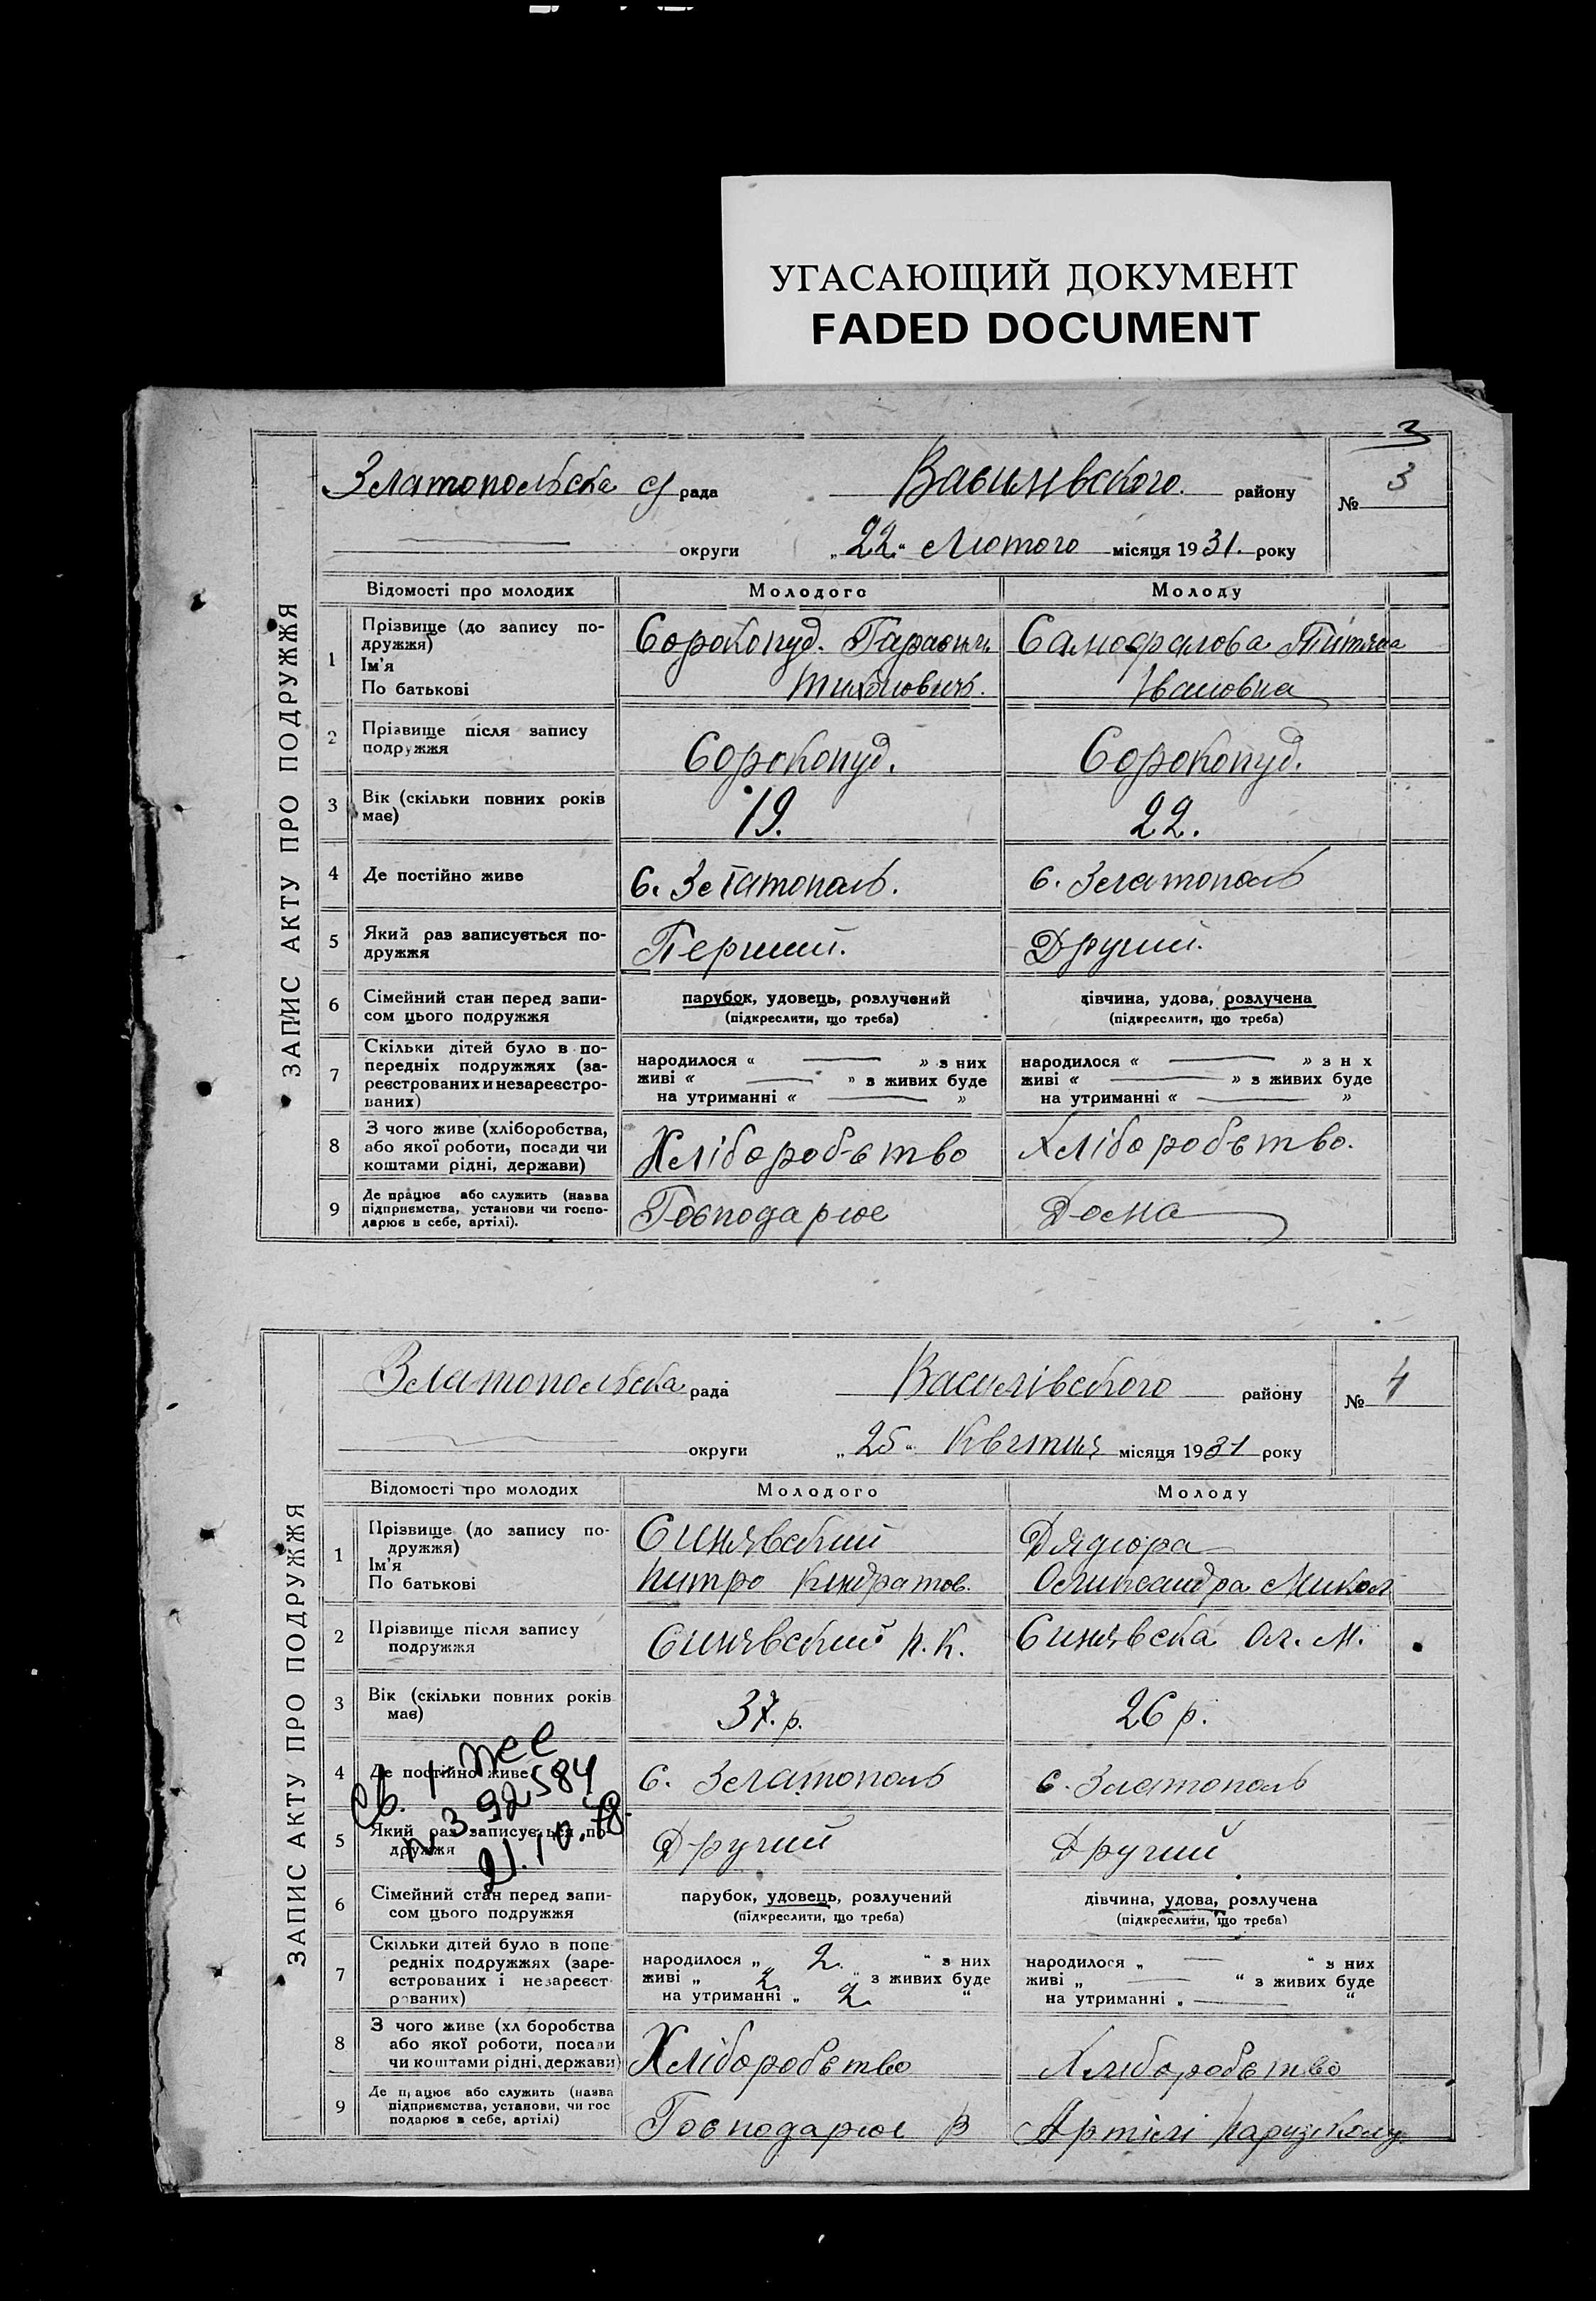 УГАСАЮЩИЙ ДОКУМЕНТ
FADED DOCUMENT
3
ЗАПИС АКТУ ПРО ПОДРУЖЖЯ
Златопольска с/рада Василівского району № 3
округи „22“ Лютого місяця 1931. року
Відомості про молодих Молодого Молоду
1 Прізвище (до запису подружжя) Ім'я По батькові
Сорокопуд. Тихонович. Самофалова Івановна
2 Прізвище після запису подружжя Сорокопуд. Сорокопуд.
3 Вік (скільки повних років має) 19. 22.
4 Де постійно живе с. Златополь. с. Златополь
5 Який раз записується подружжя Перший. Другий.
6 Сімейний стан перед записом цього подружжя
парубок, удовець, розлучений дівчина, удова, розлучена
(підкреслити, що треба) (підкреслити, що треба)
7 Скільки дітей було в попередніх подружжях (зареєстрованих и незареєстрованих)
народилося « — » з них народилося « — » з н х
живі « — » з живих буде живі « — » з живих буде
на утриманні « — » на утриманні « — »
8 З чого живе (хліборобства, або якої роботи, посади чи коштами рідні, держави) Хліборобство Хліборобство.
9 Де працює або служить (назва підприємства, установи чи господарює в себе, артілі). Господарює Дома
ЗАПИС АКТУ ПРО ПОДРУЖЖЯ
Златопольска рада Василівского району № 4
округи „25“ Квітня місяця 1931 року
Відомості про молодих Молодого Молоду
1 Прізвище (до запису подружжя) Ім'я По батькові
Синявский Дядюра
Питро Кіндратов. Оликсандра Микол
2 Прізвище після запису подружжя Синявский П.К. Синявска Ол. М.
3 Вік (скільки повних років має) 37. р. 26 р.
4 Де постійно живе с. Златополь с. Златополь
5 Який раз записується подружжя Другий Другий
92584
21.10.78.
6 Сімейний стан перед записом цього подружжя
парубок, удовець, розлучений дівчина, удова, розлучена
(підкреслити, що треба) (підкреслити, що треба)
7 Скільки дітей було в попередніх подружжях (зареєстрованих і незареєстрованих)
народилося „ 2. “ з них народилося „ — “ з них
живі „ 2 “ з живих буде живі „ — “ з живих буде
на утриманні „ 2 “ на утриманні „ — “
8 З чого живе (хл боробства або якої роботи, посади чи коштами рідні, держави) Хліборобство Хліборобство
9 Де працює або служить (назва підприємства, установи, чи господарює в себе, артілі) Господарює в Артілі